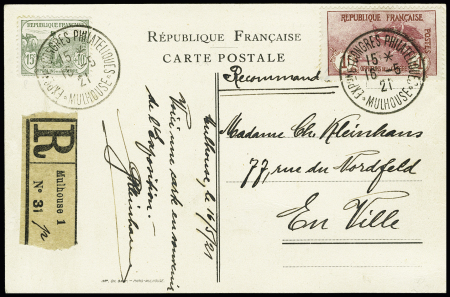 RÉPUBLIQUE FRANÇAISE
15
RÉPUBLIQUE FRANÇAISE
POSTES
CONGRÈS PHILATÉLIQUES
15 - 5
21
MULHOUSE
CONGRÈS PHILATÉLIQUE
15 *
16 - 5
21
MULHOUSE
RÉPUBLIQUE FRANÇAISE
CARTE POSTALE
Recommand
R
Mulhouse 1
No 31
Mulhouse, le 16/5/21
Voici une carte en souvenir
de l'Exposition.
Madame Ch. Kleinhans
77, rue du Nordfeld
En Ville